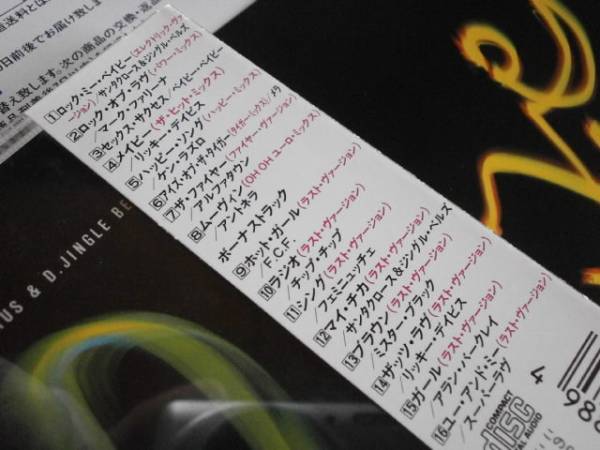 送料とは
日前後でお届け致しま
替え致します。次の商品の交換・返品
1 ロック・ミー・ベイビー(エレクトリック・ヴァージョン)
/サンタクロース&ジングル・ベルズ
2 ロック・オブ・ラヴ(パワー・ミックス)
/マーク・ファリーナ
3 セックス・サクセス/ベイビー・ベイビー
4 メイビー(ザ・ヒット・ミックス)
/リッキー・デイビス
5 ハッピー・ソング(ハッピー・ミックス)
/ケン・ラズロ
6 アイズ・オブ・ザ・タイガー(タイガー・ミックス)/メグ
7 ザ・ファイヤー(ファイヤー・ヴァージョン)
/アルファタウン
8 ムーヴィン(OH OH ユーロ・ミックス)
/アントネラ
ボーナストラック
9 ホット・ガール(ラスト・ヴァージョン)
/F.C.F.
10 ラジオ(ラスト・ヴァージョン)
/チップ・チップ
11 シング(ラスト・ヴァージョン)
/フェミニュッチェ
12 マイ・チカ(ラスト・ヴァージョン)
/サンタクロース&ジングル・ベルズ
13 ブラウン(ラスト・ヴァージョン)
/ミスター・ブラック
14 ザッツ・ラヴ(ラスト・ヴァージョン)
/リッキー・デイビス
15 ガール(ラスト・ヴァージョン)
/アラン・バークレイ
16 ユー・アンド・ミー(ラスト・ヴァージョン)
/スーパーラヴ
US & D.JINGLE BE
COMPACT
disc
AL AUDIO
4 988